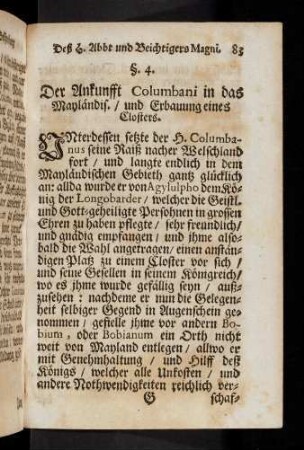 Deß H. Abbt und Beichtigers Magni. 83
§. 4.
Der Ankunfft Columbani in das
Mayländis. / und Erbauung eines
Closters.
INterdessen setzte der H. Columba-
nus seine Raiß nacher Welschland
fort / und langte endlich in dem
Mayländischen Gebieth gantz glücklich
an: allda wurde er von Agylulpho dem Kö-
nig der Longobarder / welcher die Geistl.
und Gott-geheiligte Persohnen in grossen
Ehren zu haben pflegte / sehr freundlich /
und gnädig empfangen / und ihme also-
bald die Wahl angetragen / einen anstän-
digen Platz zu einem Closter vor sich /
und seine Gesellen in seinem Königreich /
wo es ihme wurde gefällig seyn / auß-
zusehen: nachdeme er nun die Gelegen-
heit selbiger Gegend in Augenschein ge-
nommen / gefielle ihme vor andern Bo-
bium, oder Bobianum ein Orth nicht
weit von Mayland entlegen / allwo er
mit Genehmhaltung / und Hilff deß
Königs / welcher alle Unkosten / und
andere Nothwendigkeiten reichlich ver-
G schaf-